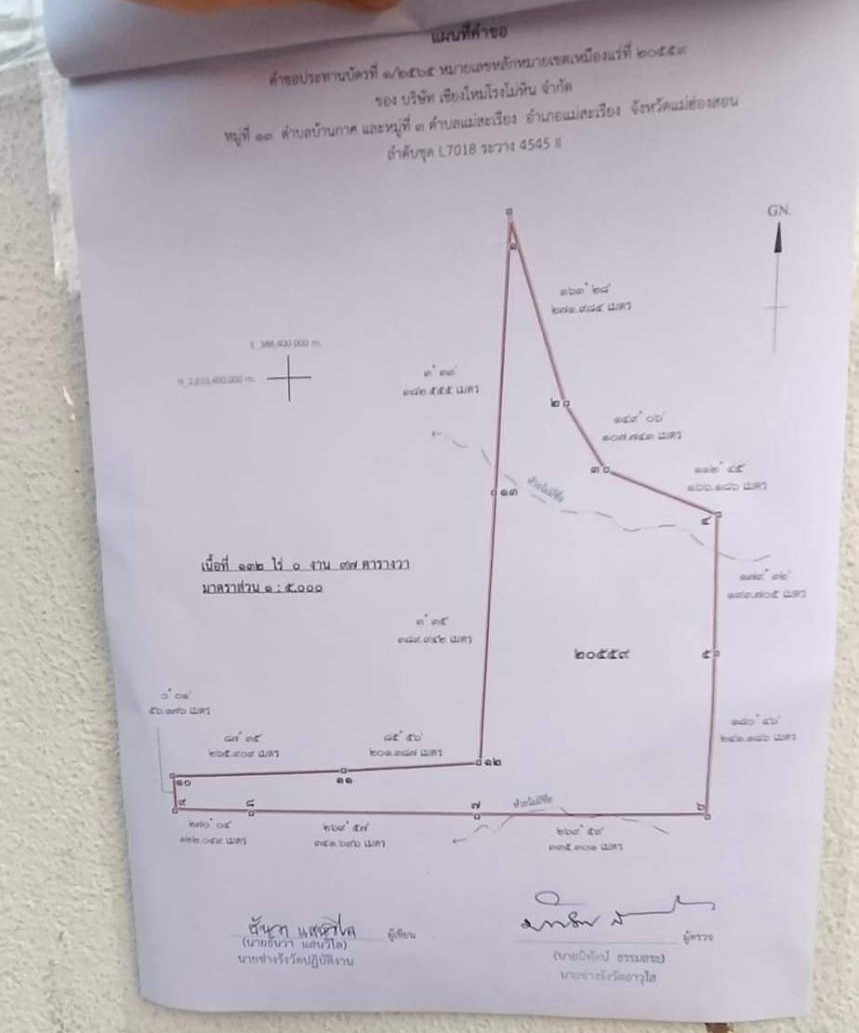 แผนที่คำขอ
คำขอประทานบัตรที่ ๑/๒๕๖๕ หมายเลขหลักหมายเขตเหมืองแร่ที่ ๒๐๕๕๙
ของ บริษัท เชียงใหม่โรงโม่หิน จำกัด
หมู่ที่ ๑๓ ตำบลบ้านกาศ และหมู่ที่ ๓ ตำบลแม่สะเรียง อำเภอแม่สะเรียง จังหวัดแม่ฮ่องสอน
ลำดับชุด L7018 ระวาง 4545 II
GN.
๑
๑๖๓° ๒๘'
๒๗๑.๙๘๔ เมตร
๒
๑๔๙° ๐๖'
๑๐๗.๗๔๓ เมตร
๓
๑๑๒° ๔๕'
๑๖๖.๑๘๖ เมตร
๔
๑๓
ห้วยไม่มีชื่อ
เมตร
เนื้อที่ ๑๓๒ ไร่ ๐ งาน ๙๗ ตารางวา
มาตราส่วน ๑ : ๕,๐๐๐
๓° ๓๕'
๓๘๙.๙๔๒ เมตร
๒๐๕๕๙
๕
๐° ๐๑'
๕๖.๑๗๖ เมตร
๘๗° ๓๕'
๒๖๕.๙๐๙ เมตร
๘๕° ๕๖'
๒๐๑.๓๘๗ เมตร
๑๘๐° ๔๖'
๒๔๑.๑๘๖ เมตร
๑๐
๑๑
๑๒
๙
๘
๗
ห้วยไม่มีชื่อ
๖
๒๗๐° ๐๔'
๑๒๒.๐๔๙ เมตร
๒๖๙° ๕๗'
๓๔๑.๖๙๖ เมตร
๒๖๙° ๕๙'
๓๓๕.๓๐๑ เมตร
ผู้เขียน
(นายธันวา แสนวิไล)
นายช่างรังวัดปฏิบัติงาน
ผู้ตรวจ
นายช่างรังวัดอาวุโส